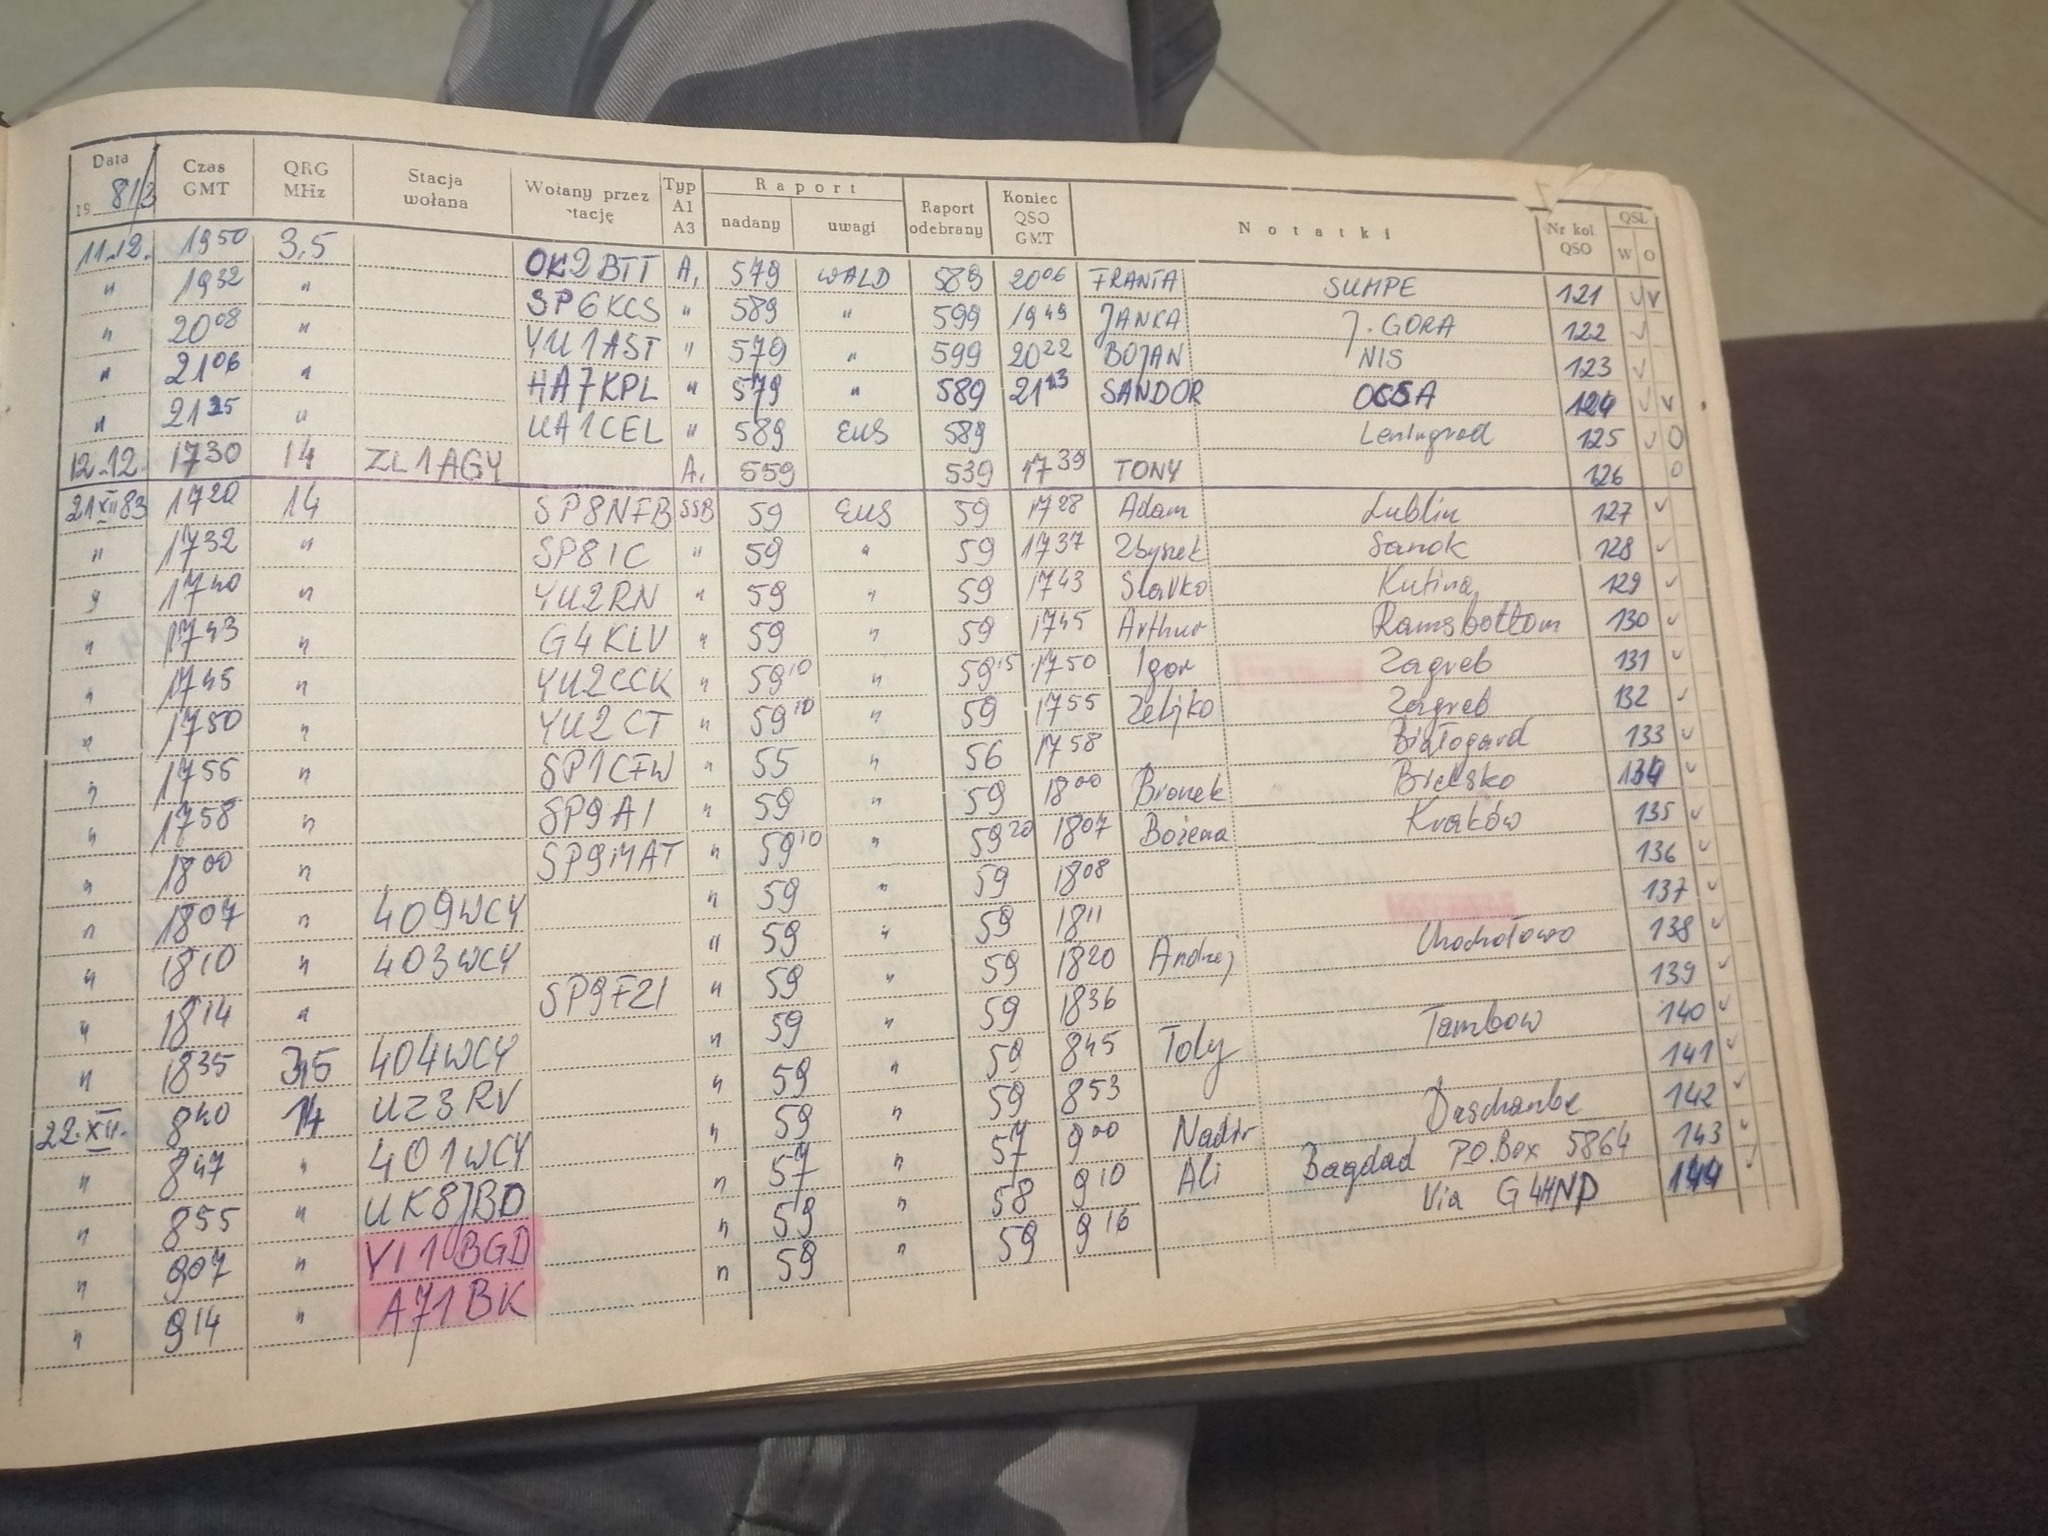 Data Czas GMT QRG MHz Stacja wołana Wołany przez stację Typ A1 A3 Raport nadany uwagi Raport odebrany Koniec QSO GMT Notatki Nr kol. QSO QSL W O
19 81/3
11.12. 1950 3,5 OK2BTT A1 579 WALD 589 2006 FRANTA SUMPE 121 v v
" 1932 " SP6KCS " 589 " 599 1949 JANKA J. GORA 122 v
" 2008 " YU1AST " 579 " 599 2022 BOJAN NIS 123 v
" 2106 " HA7KPL " 579 " 589 2123 SANDOR OCSA 124 v v
" 2125 " UA1CEL " 589 EUS 589 Leningrad 125 v O
12.12. 1730 14 ZL1AGY A1 559 539 1739 TONY 126 O
21XII83 1720 14 SP8NFB SSB 59 EUS 59 1728 Adam Lublin 127 v
" 1732 " SP8IC " 59 " 59 1737 Zbyszek Sanok 128 v
" 1740 " YU2RN " 59 " 59 1743 Slavko Kutina 129 v
" 1743 " G4KLV " 59 " 59 1745 Arthur Ramsbottom 130 v
" 1745 " YU2CCK " 5910 " 5915 1750 Igor Zagreb 131 v
" 1750 " YU2CT " 5910 " 59 1755 Željko Zagreb 132 v
" 1755 " SP1CFW " 55 " 56 1758 Białogard 133 v
" 1758 " SP9AI " 59 " 59 1800 Bronek Bielsko 134 v
" 1800 " SP9MAT " 5910 " 5920 1807 Bożena Kraków 135 v
" 1807 " 409WCY " 59 " 59 1808 136 v
" 1810 " 403WCY " 59 " 59 1811 137 v
" 1814 " SP9FZI " 59 " 59 1820 Andrzej Chochołowo 138 v
" 1835 3,5 404WCY " 59 " 59 1836 139 v
22.XII. 840 14 UZ3RV " 59 " 59 845 Toly Tambow 140 v
" 847 " 401WCY " 59 " 59 853 141 v
" 855 " UK8JBD " 57 " 57 900 Nadir Daschanbe 142 v
" 907 " YI1BGD " 59 " 58 910 Ali Bagdad P.O.Box 5864 143 v
" 914 " A71BK " 59 " 59 916 Via G4HNP 144 v